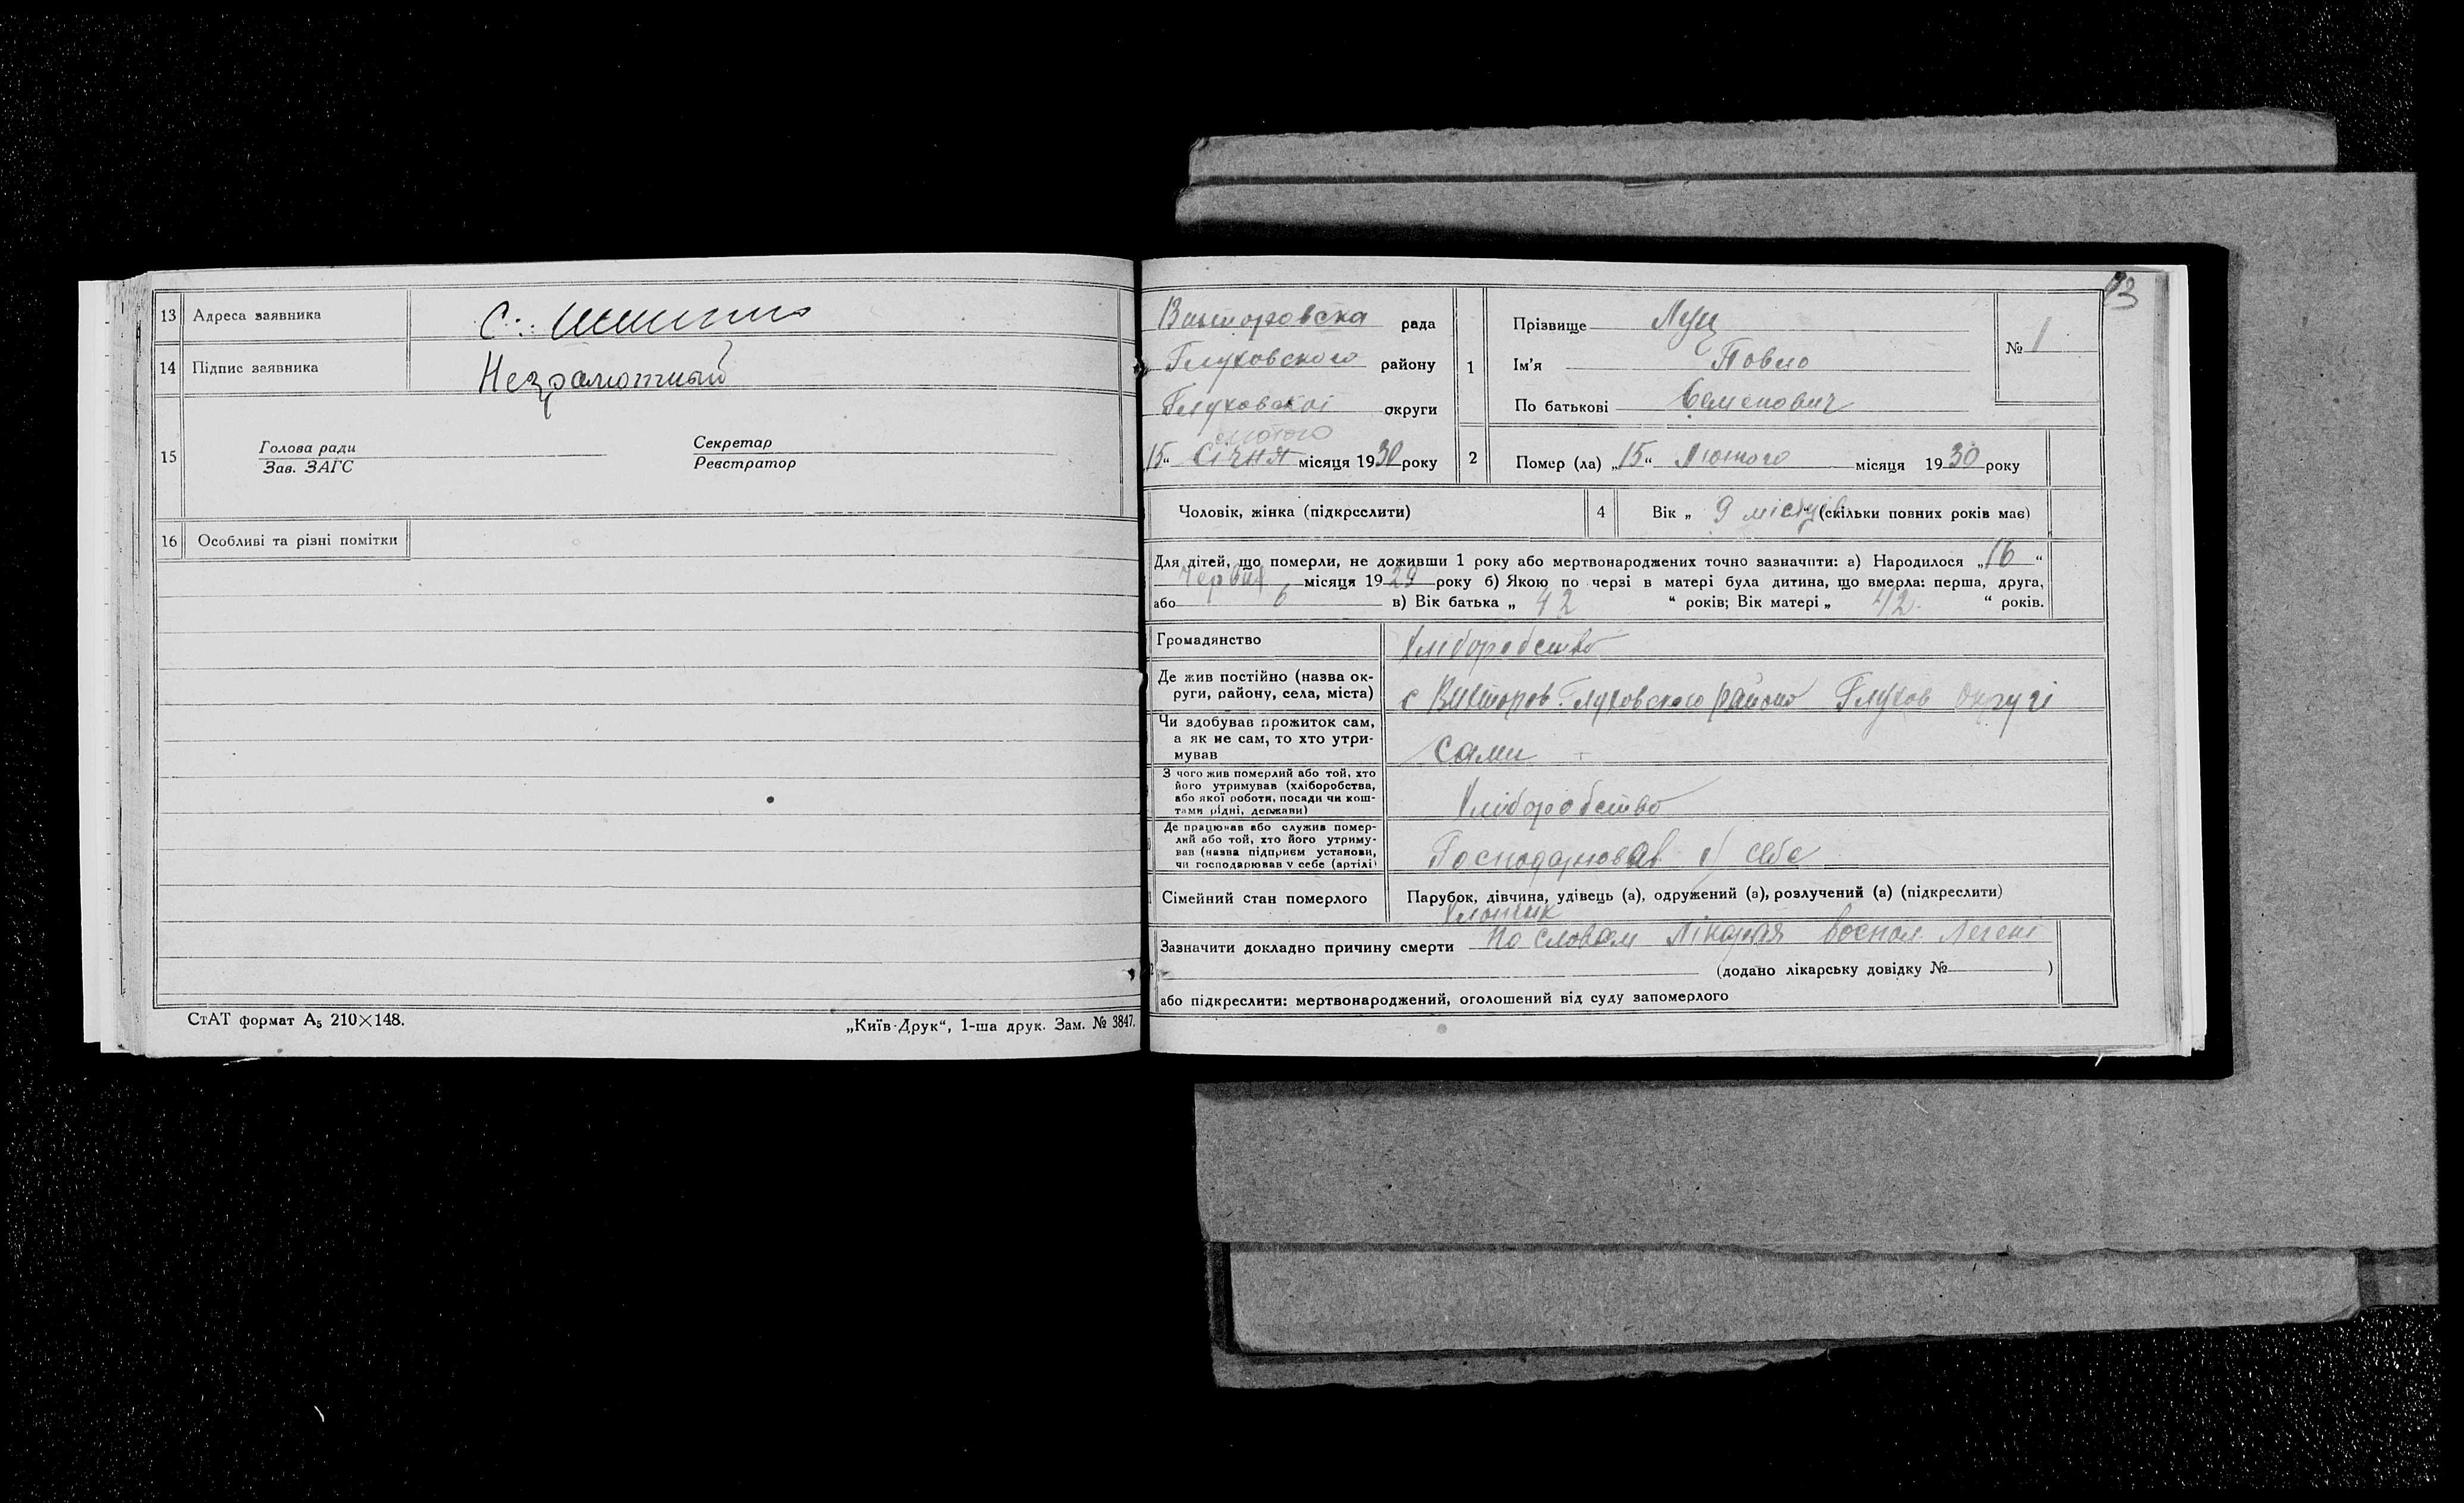 13 Адреса заявника С.
14 Підпис заявника Незрамотный
15 Голова ради Секретар
Зав. ЗАГС Реєстратор
16 Особливі та різні помітки
СтАТ формат А5 210×148.
„Київ-Друк“, 1-ша друк. Зам. № 3847.
Викторовска рада
Глуховского району
Глуховскоі округи
лютого
15“ Січня місяця 1930 року
1 Прізвище Луц
Ім'я Повло
По батькові Семенович
№ 1
2 Помер (ла) „15“ Лютого місяця 1930 року
Чоловік, жінка (підкреслити)
4 Вік „ 9 місяців “ (скільки повних років має)
Для дітей, що померли, не доживши 1 року або мертвонароджених точно зазначити: а) Народилося „16“
Червня місяця 1929 року б) Якою по черзі в матері була дитина, що вмерла: перша, друга,
або 6 в) Вік батька „ 42 “ років; Вік матері „ 42 “ років.
Громадянство Хліборобство
Де жив постійно (назва ок-
руги, району, села, міста) с Викторов Глуховского району Глухов округі
Чи здобував прожиток сам,
а як не сам, то хто утри-
мував сами
З чого жив померлий або той, хто
його утримував (хліборобства,
або якої роботи, посади чи кош-
тами рідні, держави) Хліборобство
Де працював або служив помер-
лий або той, хто його утриму-
вав (назва підприєм установи,
чи господарював у себе (артілі) Господарював у себе
Сімейний стан померлого Парубок, дівчина, удівець (а), одружений (а), розлучений (а) (підкреслити)
Хлопчик
Зазначити докладно причину смерти По словам Лікаря воспал. Легені
(додано лікарську довідку № )
або підкреслити: мертвонароджений, оголошений від суду запомерлого